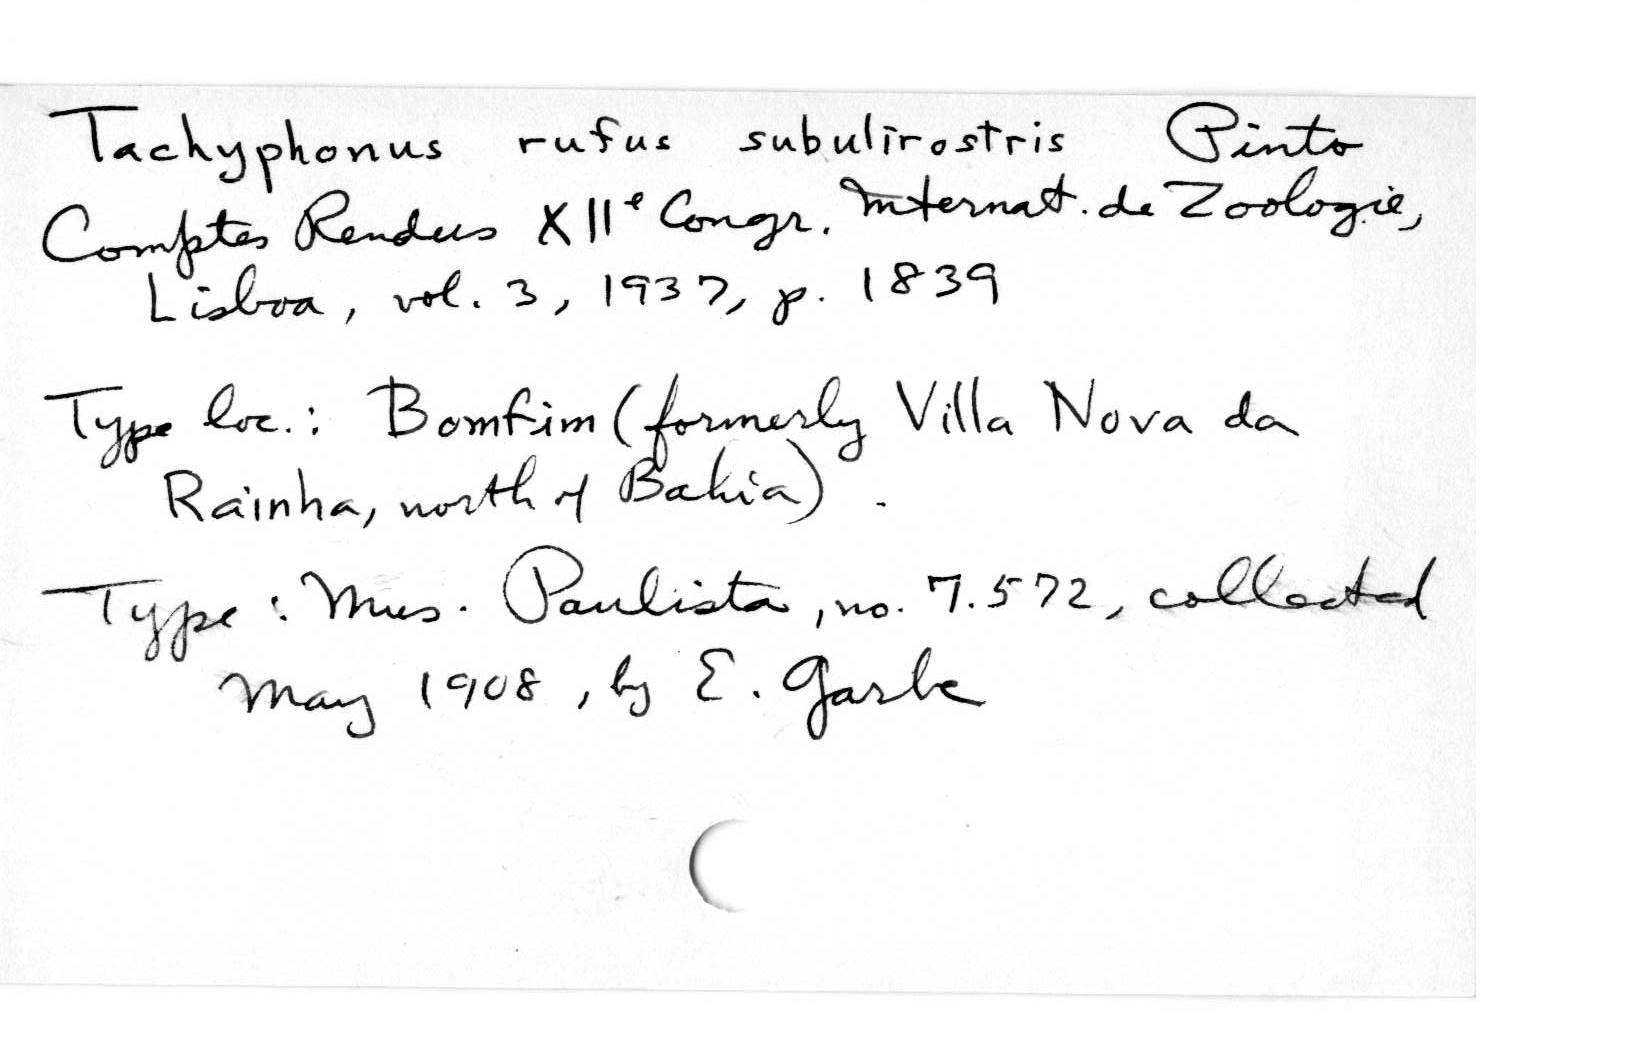 Tachyphonus rufus subulirostris Pinto
Comptes Rendus XIIe Congr. Internat. de Zoologie,
Lisboa, vol. 3, 1937, p. 1839
Type loc.: Bomfim (formerly Villa Nova da
Rainha, north of Bahia).
Type: Mus. Paulista, no. 7.572, collected
May 1908, by E. Garbe